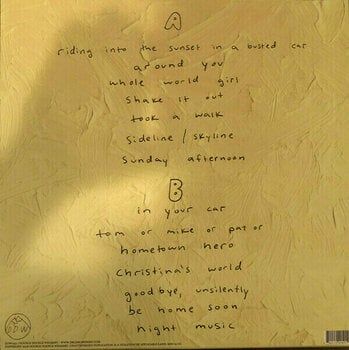 A
riding into the sunset in a busted car
around you
whole world girl
shake it out
took a walk
sideline / skyline
sunday afternoon
B
in your car
tom or mike or pat or
hometown hero
christina's world
goodbye, unsilently
be home soon
night music
DDW